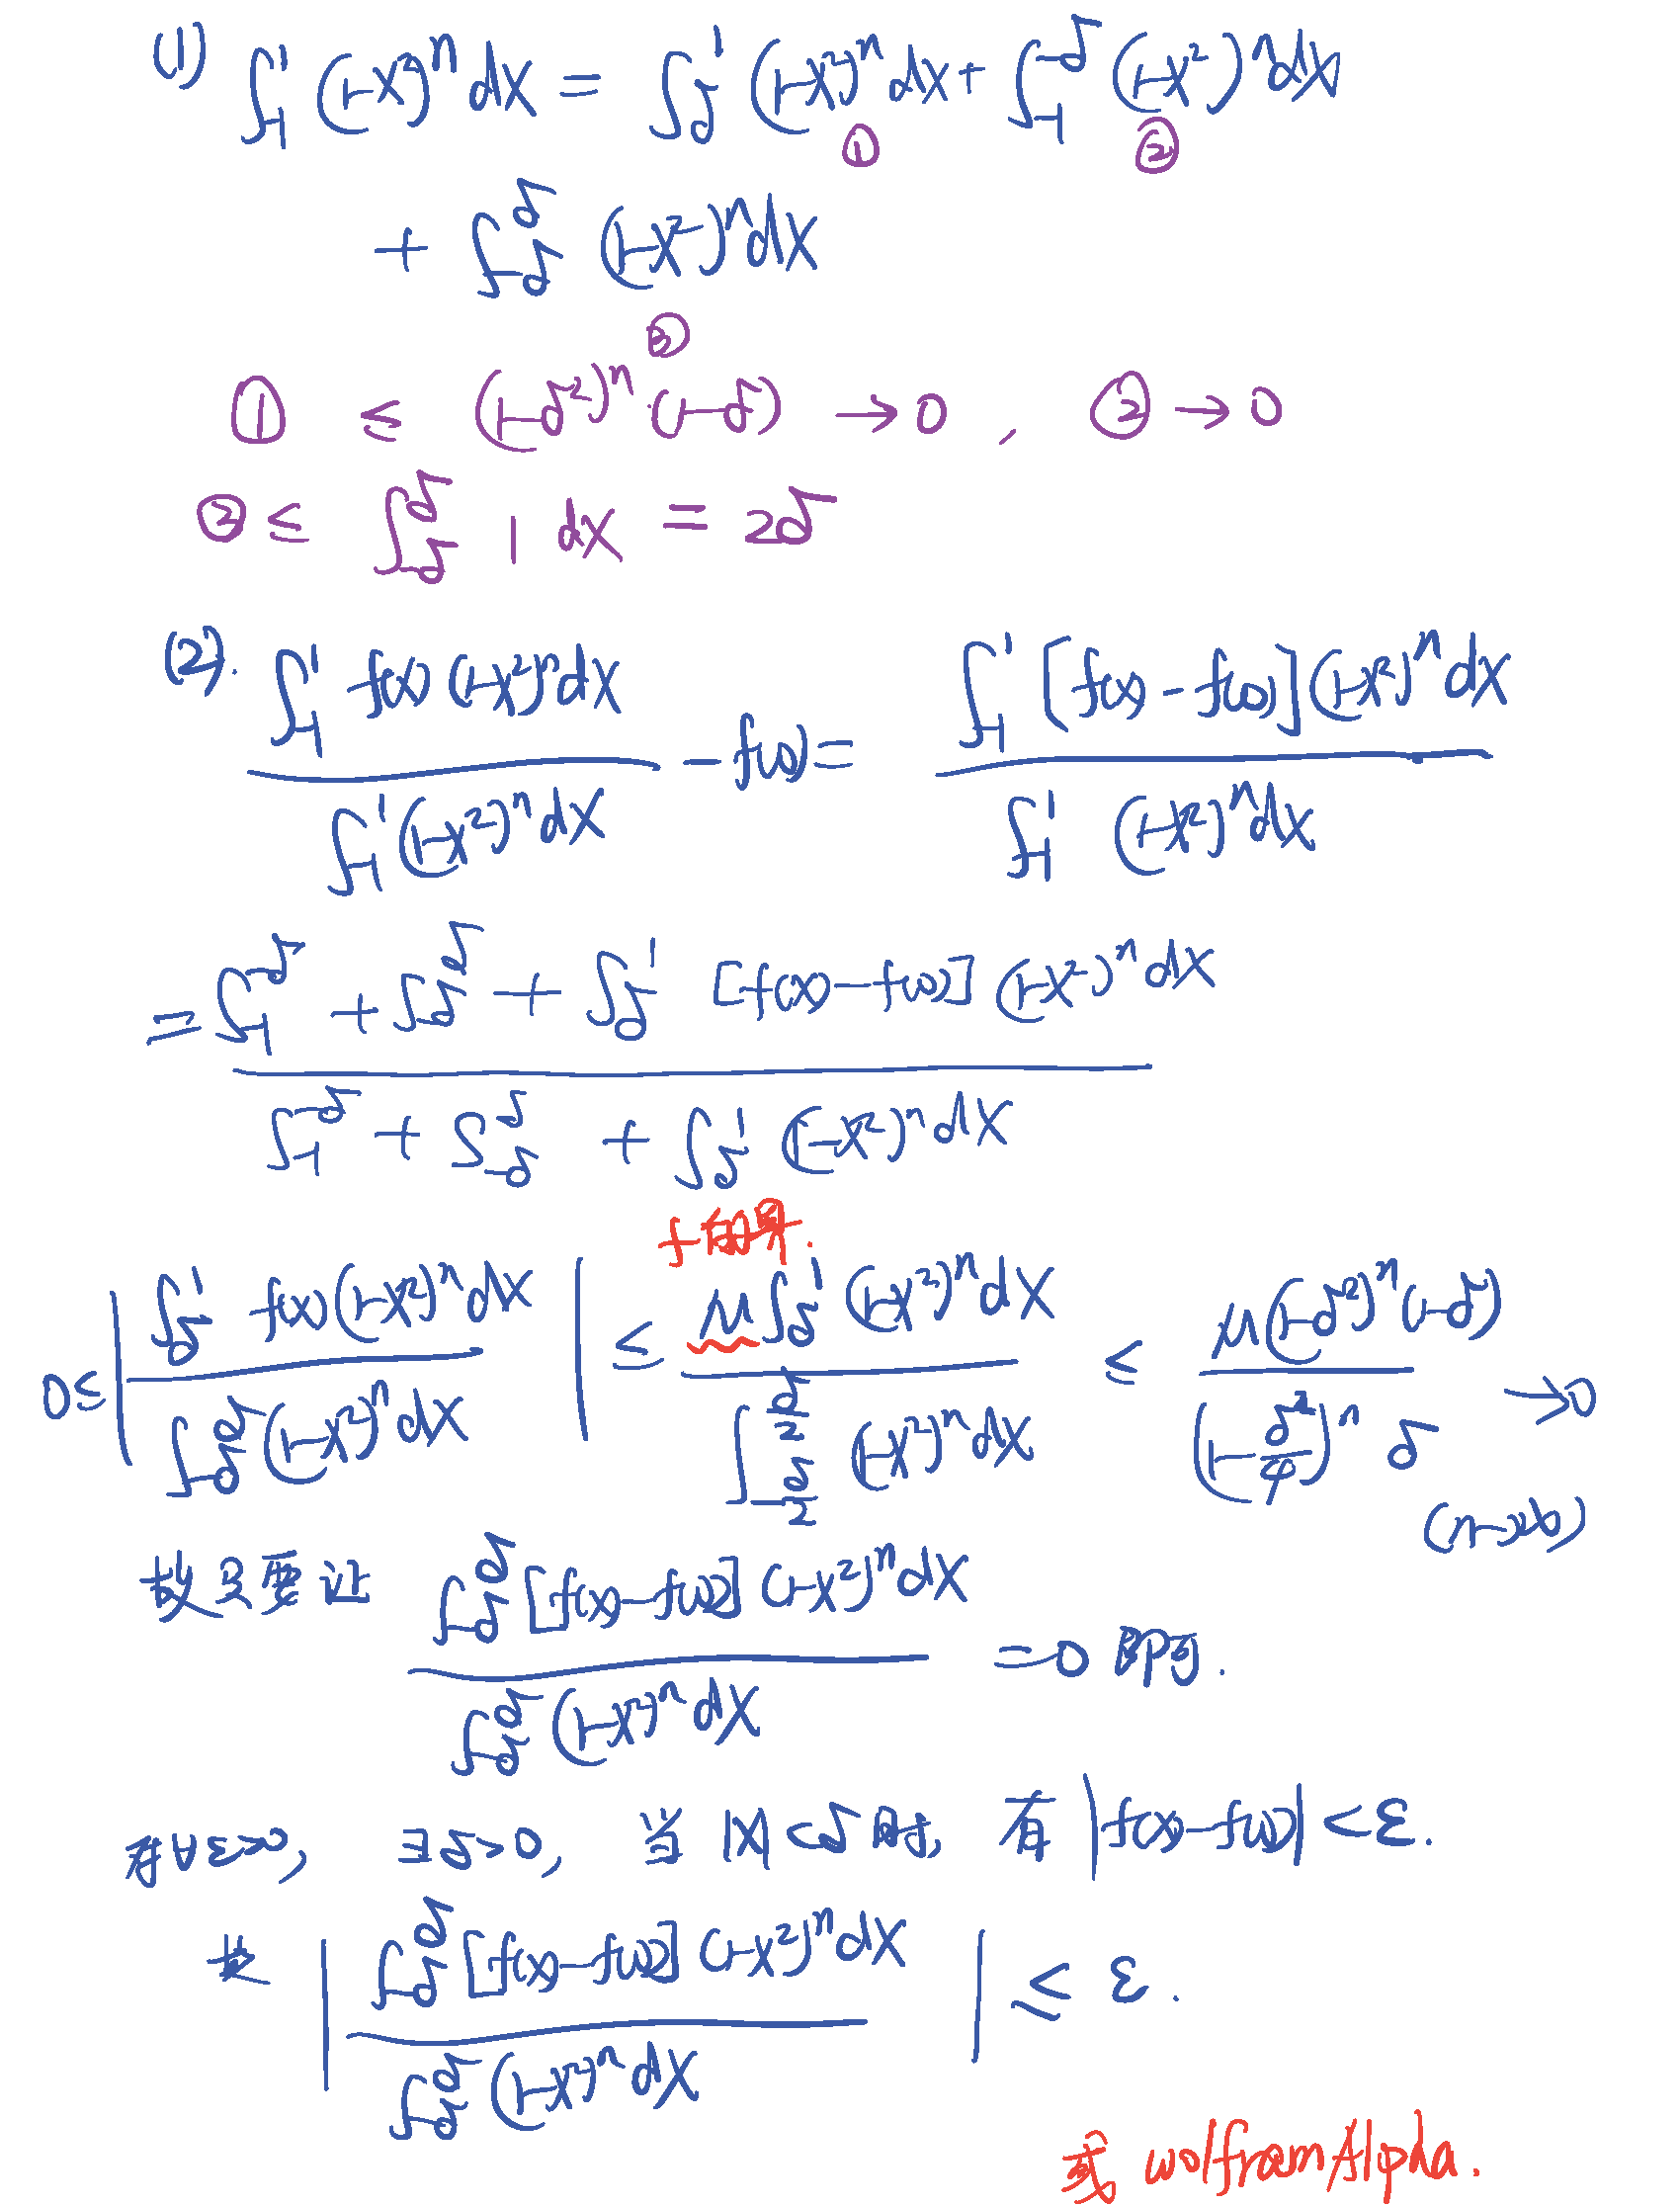 (1) ∫_{-1}^{1} (1-x²)ⁿ dx = ∫_{δ}^{1} (1-x²)ⁿ dx + ∫_{-1}^{-δ} (1-x²)ⁿ dx
① ②
+ ∫_{-δ}^{δ} (1-x²)ⁿ dx
③
① ≤ (1-δ²)ⁿ·(1-δ) → 0 , ② → 0
② ≤ ∫_{-δ}^{δ} 1 dx = 2δ
(2). \frac{∫_{-1}^{1} f(x) (1-x²)ⁿ dx}{∫_{-1}^{1} (1-x²)ⁿ dx} - f(0) = \frac{∫_{-1}^{1} [f(x) - f(0)] (1-x²)ⁿ dx}{∫_{-1}^{1} (1-x²)ⁿ dx}
= \frac{∫_{-1}^{-δ} + ∫_{-δ}^{δ} + ∫_{δ}^{1} [f(x) - f(0)] (1-x²)ⁿ dx}{∫_{-1}^{-δ} + ∫_{-δ}^{δ} + ∫_{δ}^{1} (1-x²)ⁿ dx}
f的界.
0 ≤ | \frac{∫_{δ}^{1} f(x) (1-x²)ⁿ dx}{∫_{-δ}^{δ} (1-x²)ⁿ dx} | ≤ \frac{M ∫_{δ}^{1} (1-x²)ⁿ dx}{∫_{-\frac{δ}{2}}^{\frac{δ}{2}} (1-x²)ⁿ dx} ≤ \frac{M(1-δ²)ⁿ(1-δ)}{(1-\frac{δ²}{4})ⁿ δ} → 0
(n→∞)
故只要证 \frac{∫_{-δ}^{δ} [f(x) - f(0)] (1-x²)ⁿ dx}{∫_{-δ}^{δ} (1-x²)ⁿ dx} = 0 即可.
对∀ε>0, ∃δ>0, 当 |x|<δ 时, 有 |f(x) - f(0)| < ε.
故 | \frac{∫_{-δ}^{δ} [f(x) - f(0)] (1-x²)ⁿ dx}{∫_{-δ}^{δ} (1-x²)ⁿ dx} | ≤ ε.
或 wolframAlpha.